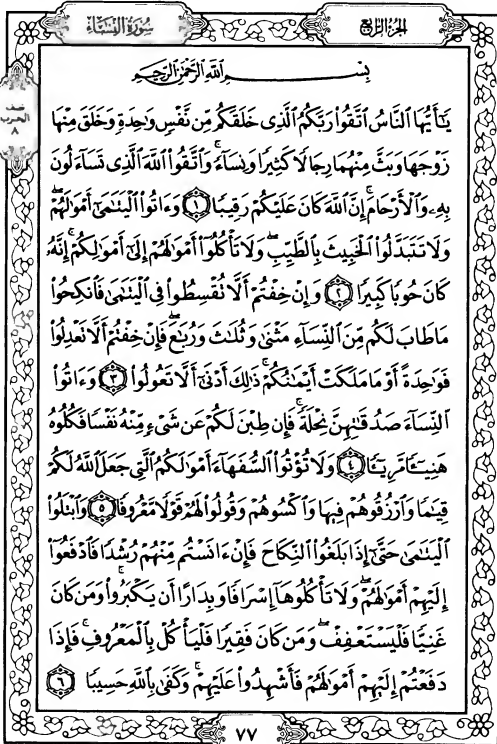 سُورَةُ النِّسَاءِ
الجُزْءُ الرَّابِعُ
بِسْمِ اللَّهِ الرَّحْمَٰنِ الرَّحِيمِ
يَـٰٓأَيُّهَا ٱلنَّاسُ ٱتَّقُوا۟ رَبَّكُمُ ٱلَّذِى خَلَقَكُم مِّن نَّفْسٍ وَٰحِدَةٍ وَخَلَقَ مِنْهَا
زَوْجَهَا وَبَثَّ مِنْهُمَا رِجَالًا كَثِيرًا وَنِسَآءً ۚ وَٱتَّقُوا۟ ٱللَّهَ ٱلَّذِى تَسَآءَلُونَ
بِهِۦ وَٱلْأَرْحَامَ ۚ إِنَّ ٱللَّهَ كَانَ عَلَيْكُمْ رَقِيبًا ١ وَءَاتُوا۟ ٱلْيَتَـٰمَىٰٓ أَمْوَٰلَهُمْ ۖ
وَلَا تَتَبَدَّلُوا۟ ٱلْخَبِيثَ بِٱلطَّيِّبِ ۖ وَلَا تَأْكُلُوٓا۟ أَمْوَٰلَهُمْ إِلَىٰٓ أَمْوَٰلِكُمْ ۚ إِنَّهُۥ
كَانَ حُوبًا كَبِيرًا ٢ وَإِنْ خِفْتُمْ أَلَّا تُقْسِطُوا۟ فِى ٱلْيَتَـٰمَىٰ فَٱنكِحُوا۟
مَا طَابَ لَكُم مِّنَ ٱلنِّسَآءِ مَثْنَىٰ وَثُلَـٰثَ وَرُبَـٰعَ ۖ فَإِنْ خِفْتُمْ أَلَّا تَعْدِلُوا۟
فَوَٰحِدَةً أَوْ مَا مَلَكَتْ أَيْمَـٰنُكُمْ ۚ ذَٰلِكَ أَدْنَىٰٓ أَلَّا تَعُولُوا۟ ٣ وَءَاتُوا۟
ٱلنِّسَآءَ صَدُقَـٰتِهِنَّ نِحْلَةً ۚ فَإِن طِبْنَ لَكُمْ عَن شَىْءٍ مِّنْهُ نَفْسًا فَكُلُوهُ
هَنِيٓـًٔا مَّرِيٓـًٔا ٤ وَلَا تُؤْتُوا۟ ٱلسُّفَهَآءَ أَمْوَٰلَكُمُ ٱلَّتِى جَعَلَ ٱللَّهُ لَكُمْ
قِيَـٰمًا وَٱرْزُقُوهُمْ فِيهَا وَٱكْسُوهُمْ وَقُولُوا۟ لَهُمْ قَوْلًا مَّعْرُوفًا ٥ وَٱبْتَلُوا۟
ٱلْيَتَـٰمَىٰ حَتَّىٰٓ إِذَا بَلَغُوا۟ ٱلنِّكَاحَ فَإِنْ ءَانَسْتُم مِّنْهُمْ رُشْدًا فَٱدْفَعُوٓا۟
إِلَيْهِمْ أَمْوَٰلَهُمْ ۖ وَلَا تَأْكُلُوهَآ إِسْرَافًا وَبِدَارًا أَن يَكْبَرُوا۟ ۚ وَمَن كَانَ
غَنِيًّا فَلْيَسْتَعْفِفْ ۖ وَمَن كَانَ فَقِيرًا فَلْيَأْكُلْ بِٱلْمَعْرُوفِ ۚ فَإِذَا
دَفَعْتُمْ إِلَيْهِمْ أَمْوَٰلَهُمْ فَأَشْهِدُوا۟ عَلَيْهِمْ ۚ وَكَفَىٰ بِٱللَّهِ حَسِيبًا ٦
الحزب
٨
٧٧